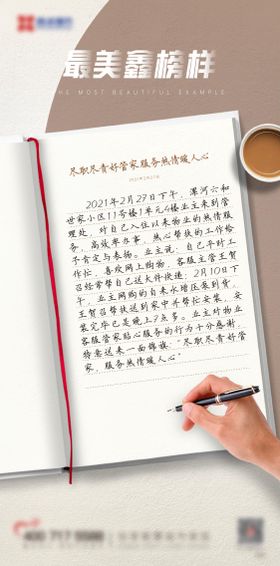 最美鑫榜样
THE MOST BEAUTIFUL EXAMPLE
尽职尽责好管家服务热情暖人心
2021年2月27日
2021年2月27日下午，漯河六和
世家小区11号楼1单元4楼业主来到管
理处，对自己入住以来物业的热情服
务，高效率办事，热心帮扶的工作给
予肯定与表扬。业主说：自己平时工
作忙，喜欢网上购物，客服主管王贺
召经常帮自己送大件快递；2月10日下
午，业主网购的自来水增压泵到货，
王贺召帮扶送到家中并帮忙安装，安
装完毕已是晚上7点多。业主对物业
客服管家贴心服务的行为十分感谢，
特意送来一面锦旗：“尽职尽责好管
家，服务热情暖人心”
400 717 5588